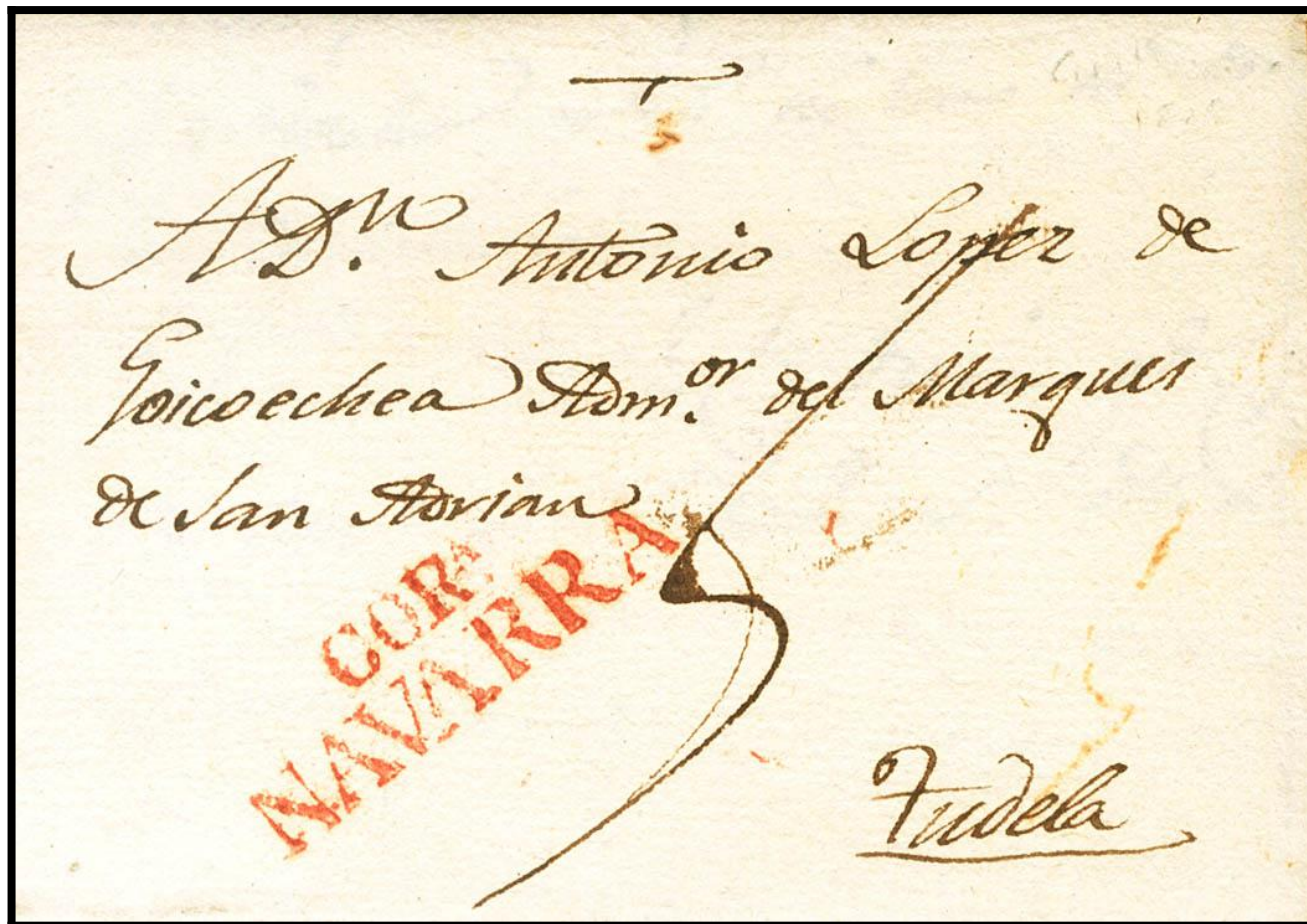 A D.n Antonio Lopez de
Goicoechea Adm.or del Marques
de San Adrian
COR.A
NAVARRA
5
Tudela